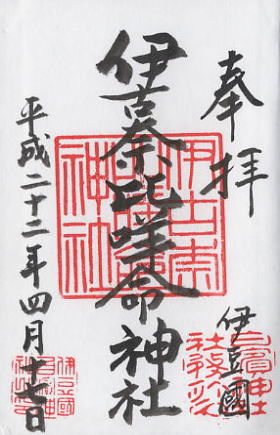 奉拝
伊豆國
伊古奈比咩命神社
平成二十二年四月十七日
伊古奈
比咩命
神社
白濱神社
伊豆國